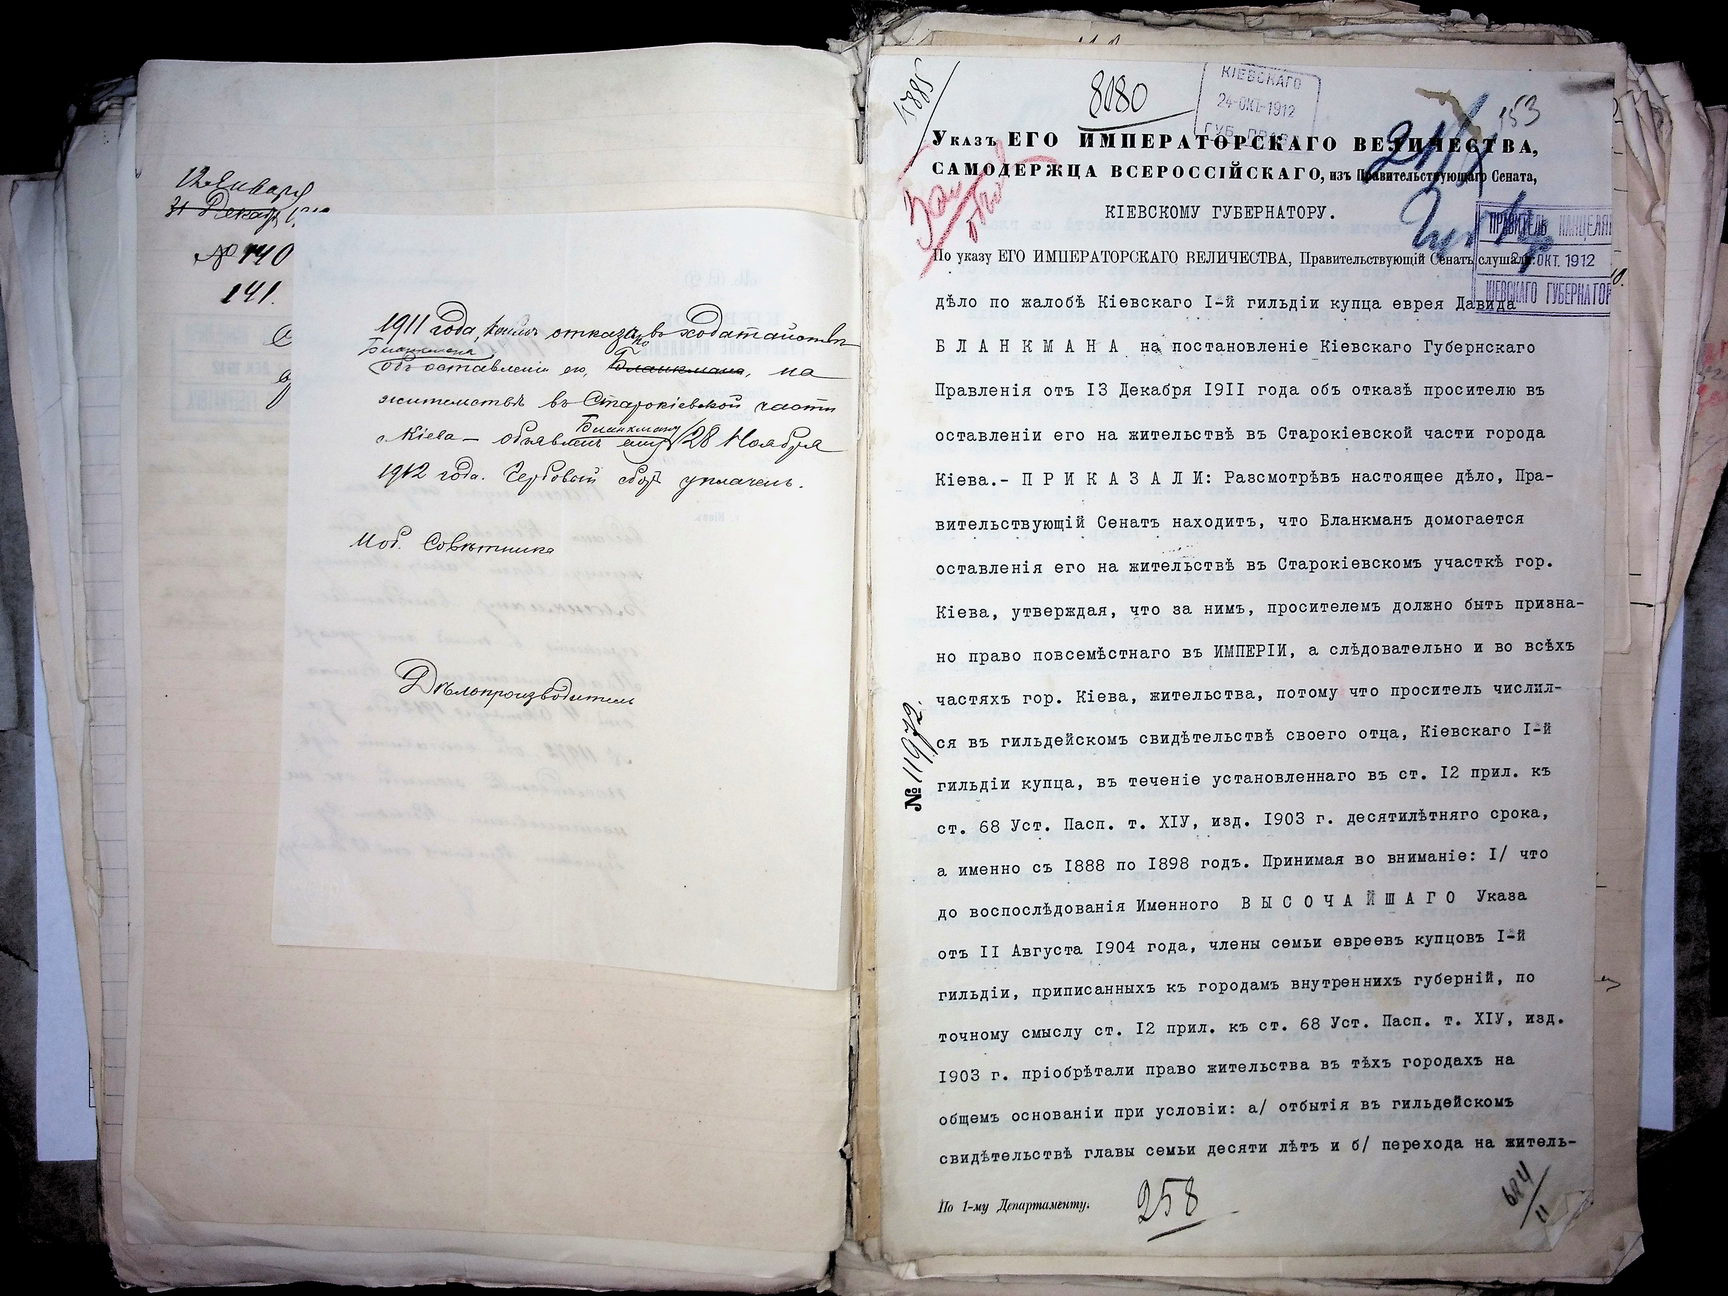 12 Января
31 Декабр
№ 140
141.
1911 года, отказано въ ходатайствѣ
Бланкмана
объ оставленіи его, Бланкмана, на
жительствѣ въ Старокіевской части
Бланкману
г. Кіева — объявленъ ему 28 Ноября
1912 года. Гербовый сборъ уплаченъ.
Совѣтника
Дѣлопроизводитель
8180
КІЕВСКАГО
24-ОКТ-1912
ГУБ. ПРАВ.
153
Указъ ЕГО ИМПЕРАТОРСКАГО ВЕЛИЧЕСТВА,
САМОДЕРЖЦА ВСЕРОССІЙСКАГО, изъ Правительствующаго Сената,
КІЕВСКОМУ ГУБЕРНАТОРУ.
ПРАВИТЕЛЬ КАНЦЕЛЯР
ОКТ. 1912
КІЕВСКАГО ГУБЕРНАТОР
По указу ЕГО ИМПЕРАТОРСКАГО ВЕЛИЧЕСТВА, Правительствующій Сенатъ слушали:
дѣло по жалобѣ Кіевскаго I-й гильдіи купца еврея Давида
БЛАНКМАНА на постановленіе Кіевскаго Губернскаго
Правленія отъ 13 Декабря 1911 года объ отказѣ просителю въ
оставленіи его на жительствѣ въ Старокіевской части города
Кіева.- ПРИКАЗАЛИ: Разсмотрѣвъ настоящее дѣло, Пра-
вительствующій Сенатъ находитъ, что Бланкманъ домогается
оставленія его на жительствѣ въ Старокіевскомъ участкѣ гор.
Кіева, утверждая, что за нимъ, просителемъ должно быть призна-
но право повсемѣстнаго въ ИМПЕРІИ, а слѣдовательно и во всѣхъ
частяхъ гор. Кіева, жительства, потому что проситель числил-
ся въ гильдейскомъ свидѣтельствѣ своего отца, Кіевскаго I-й
гильдіи купца, въ теченіе установленнаго въ ст. I2 прил. къ
ст. 68 Уст. Пасп. т. XIУ, изд. I903 г. десятилѣтняго срока,
а именно съ I888 по I898 годъ. Принимая во вниманіе: I/ что
до воспослѣдованія Именного ВЫСОЧАЙШАГО Указа
отъ II Августа I904 года, члены семьи евреевъ купцовъ I-й
гильдіи, приписанныхъ къ городамъ внутреннихъ губерній, по
точному смыслу ст. I2 прил. къ ст. 68 Уст. Пасп. т. XIУ, изд.
I903 г. пріобрѣтали право жительства въ тѣхъ городахъ на
общемъ основаніи при условіи: а/ отбытія въ гильдейскомъ
свидѣтельствѣ главы семьи десяти лѣтъ и б/ перехода на житель-
№ 11972.
По 1-му Департаменту.
258
684/11